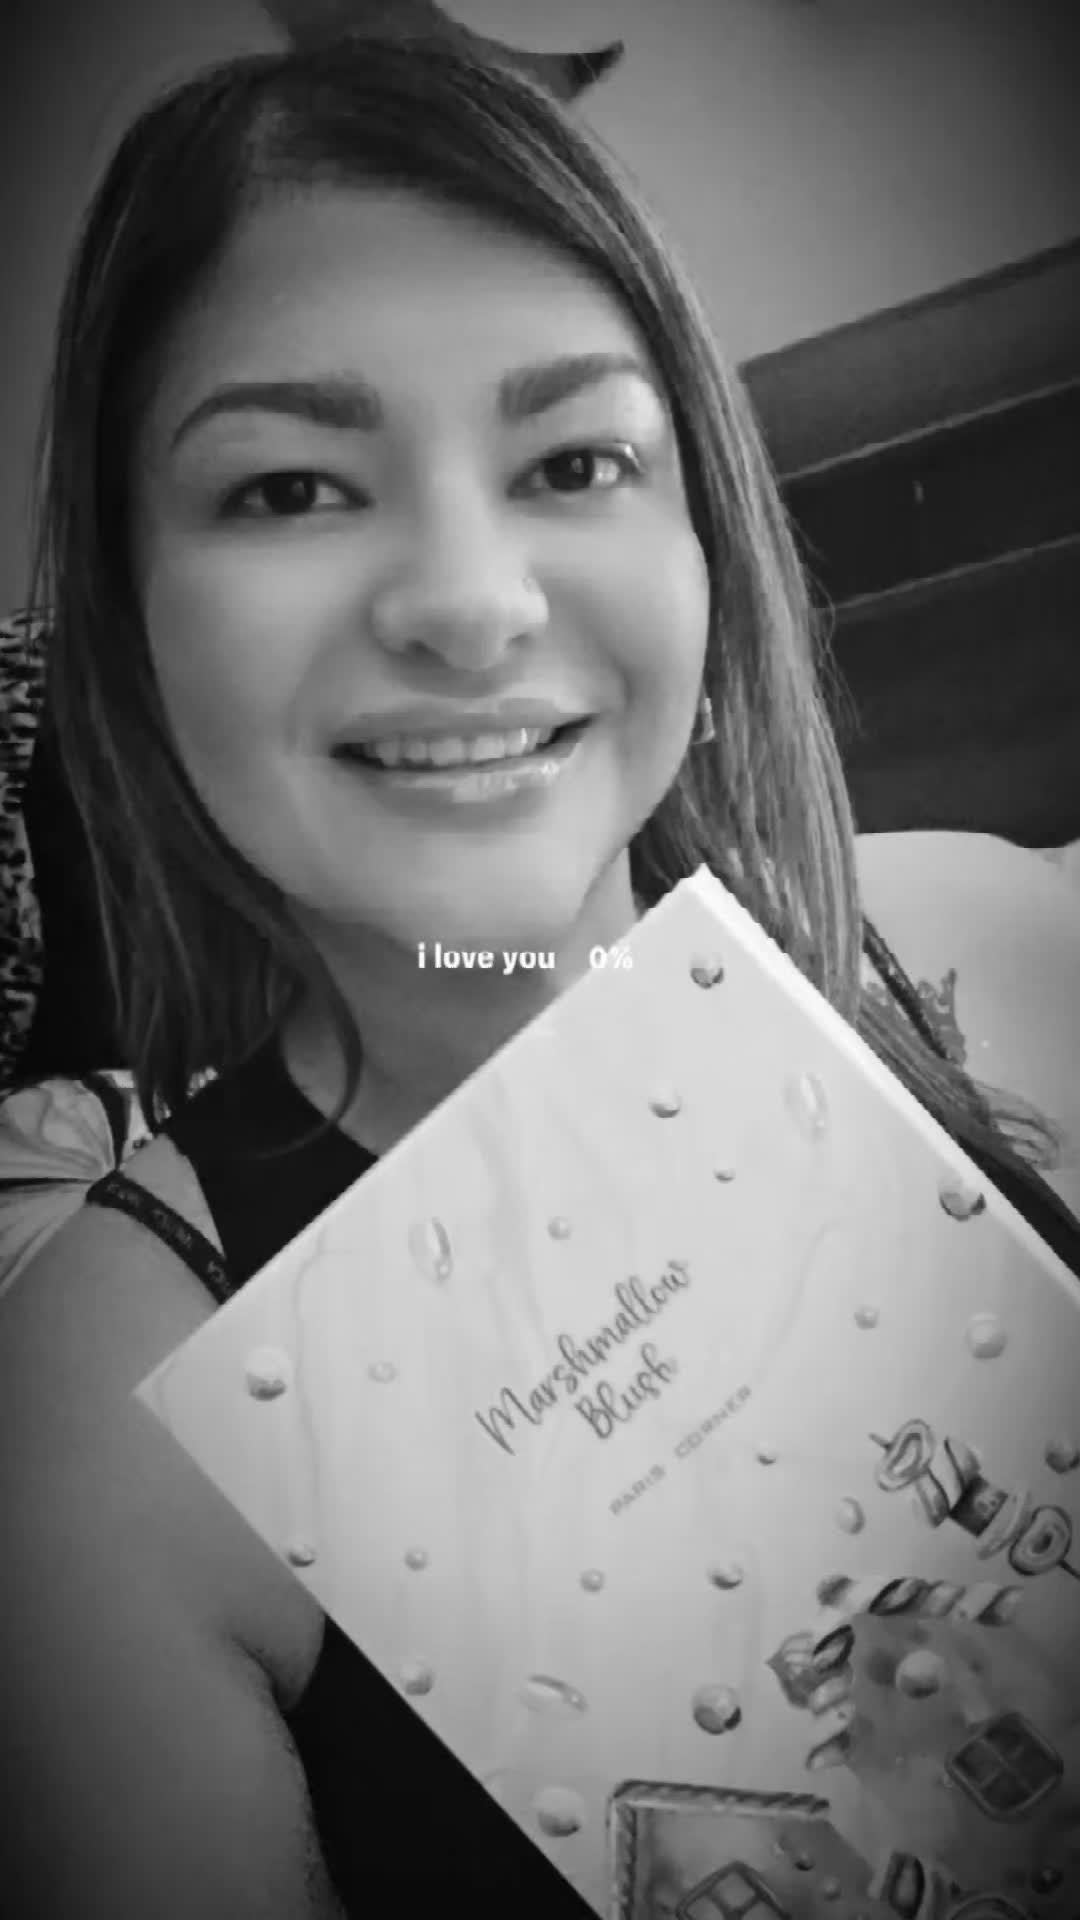 i love you 0%
Marshmallow
Blush
PARIS CORNER